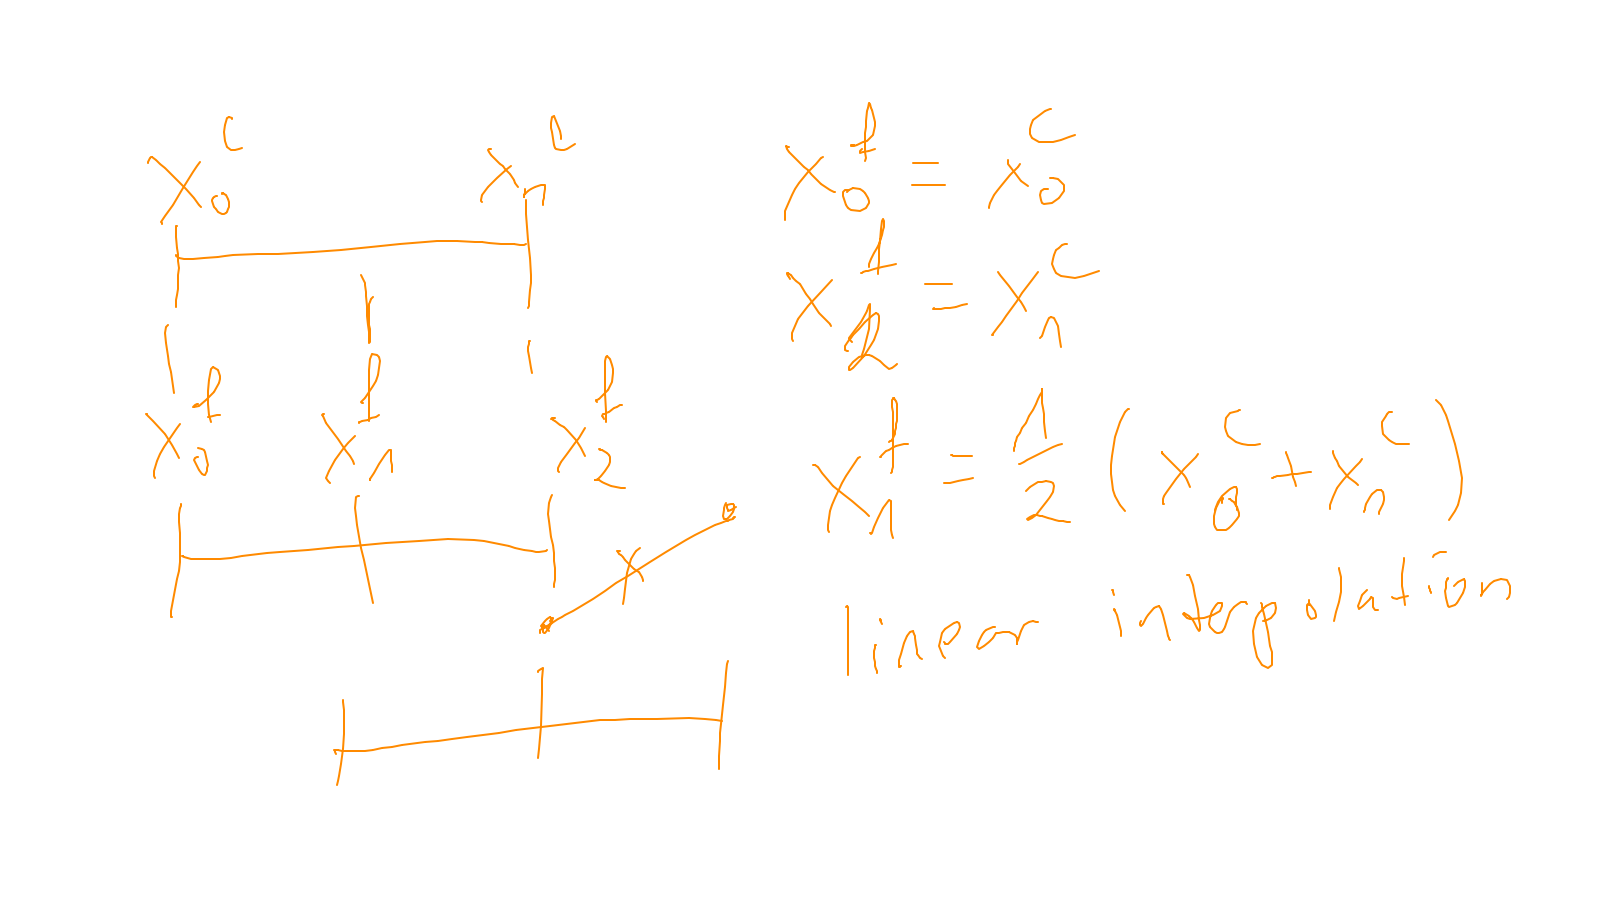 x₀ᶜ x₁ᶜ
x₀ᶠ x₁ᶠ x₂ᶠ
x
x₀ᶠ = x₀ᶜ
x₂ᶠ = x₁ᶜ
x₁ᶠ = 1/2 (x₀ᶜ + x₁ᶜ)
linear interpolation